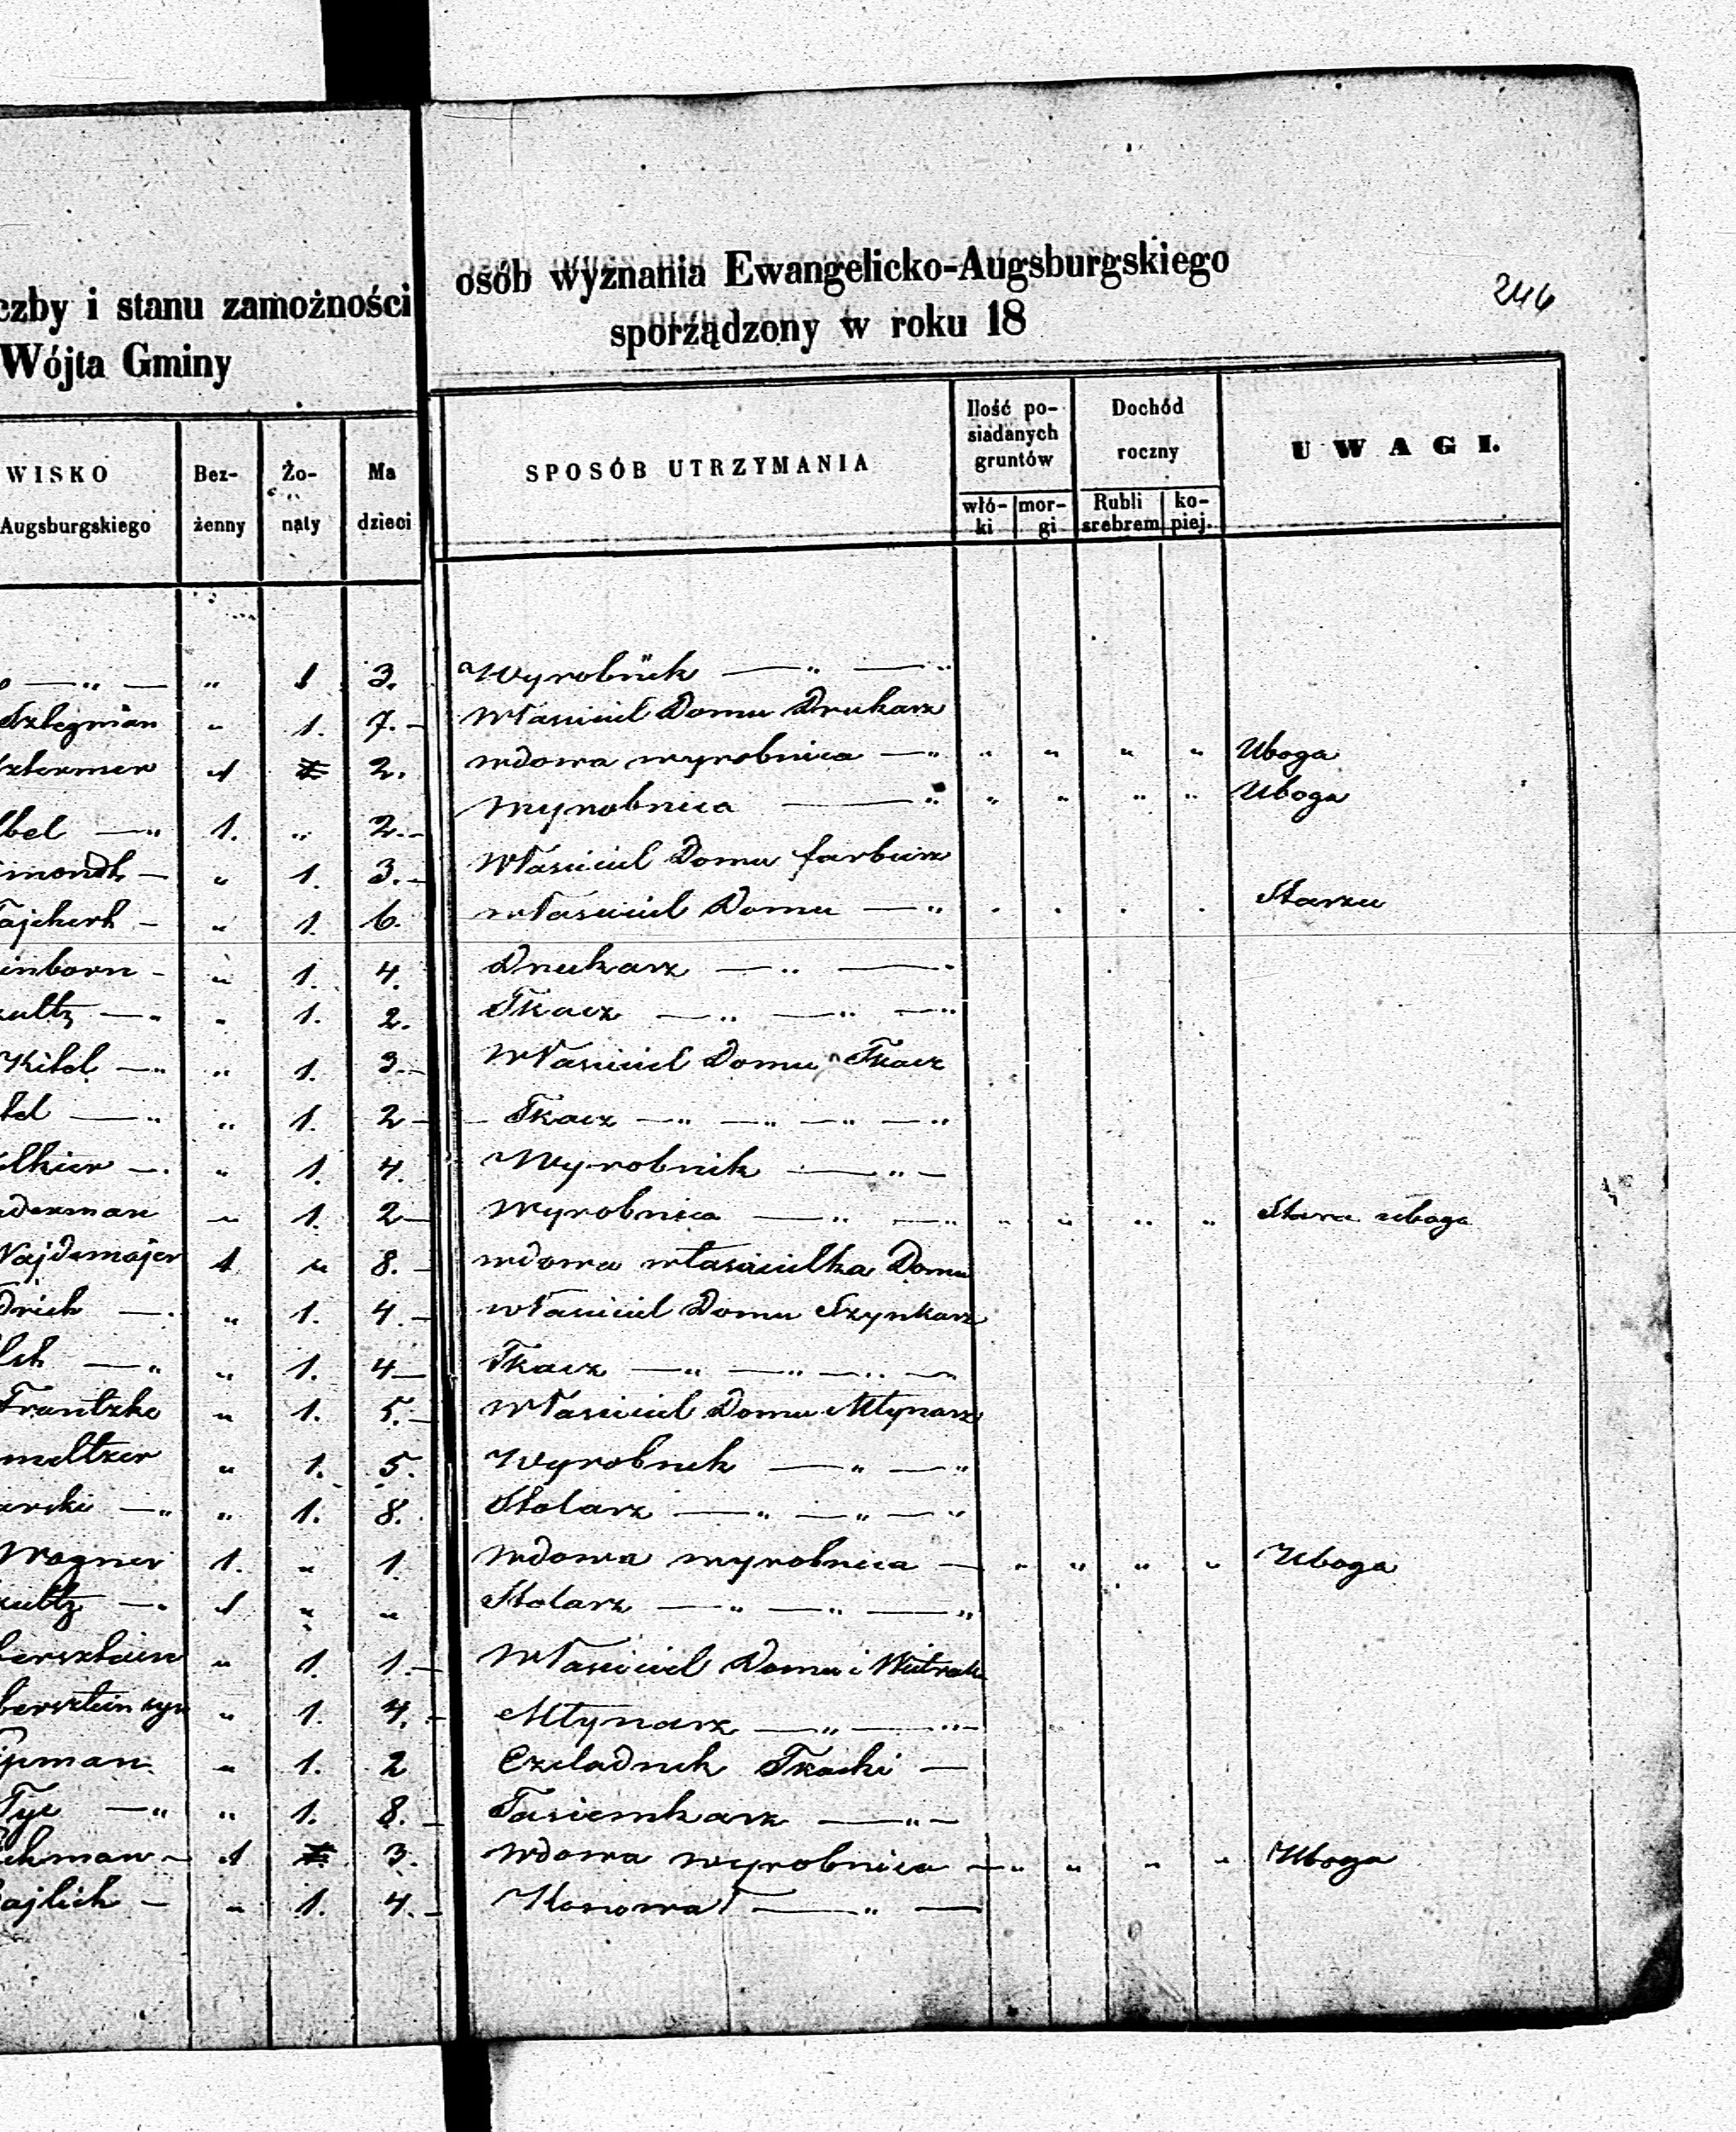 czby i stanu zamożności osób wyznania Ewangelicko-Augsburgskiego
246
Wójta Gminy sporządzony w roku 18
WISKO Augsburgskiego | Bez-żenny | Żo-naty | Ma dzieci | SPOSÓB UTRZYMANIA | Ilość po-siadanych gruntów włó-ki mor-gi | Dochód roczny Rubli srebrem ko-piej. | UWAGI.
— " — " 1 3. Wyrobnik — " — "
Szlegman " 1. 7. — Własciciel Domu Drukarz
sztermer 1 2. wdowa wyrobnica — " " " " " Uboga
bel — " 1. " 2. — Wyrobnica — " " " " " Uboga
mondt — " 1. 3. — Własciciel Domu farbierz
Tajchert — " 1. 6. własciciel Domu — " . . . . Starzec
inborn — " 1. 4. Drukarz — " —
ultz — " " 1. 2. Tkacz — " — " — "
Kitel — " " 1. 3. — Własciciel Domu Tkacz
tel — " " 1. 2 — Tkacz — " — " — " — "
lkier — . " 1. 4. Wyrobnik — " —
derman " 1. 2 — Wyrobnica — " — " " " " " Stara uboga
Najdemajer 1 " 8. — wdowa własicielka Domu
drich — . " 1. 4. — własciciel Domu Szynkarz
— " " 1. 4 — Tkacz — " — " — " —
Frantzke " 1. 5. — Własciciel Domu Młynarz
meltzer " 1. 5. Wyrobnik — " — "
arski — " " 1. 8. Stolarz — " — " — "
Wagner 1. " 1. wdowa wyrobnica — " " " " Uboga
ultz — . 1 " " Stolarz — " — " — "
bersztein " 1. 1 — Własciciel Domu i Wiatraka
bersztein syn " 1. 4. — Młynarz — " — "
ipman " 1. 2 Czeladnik Tkacki —
Tyc — " " 1. 8. — Tasiemkarz — " —
chman — 1 3. wdowa wyrobnica — " " " " Uboga
ajlich — " 1. 4. — — " —